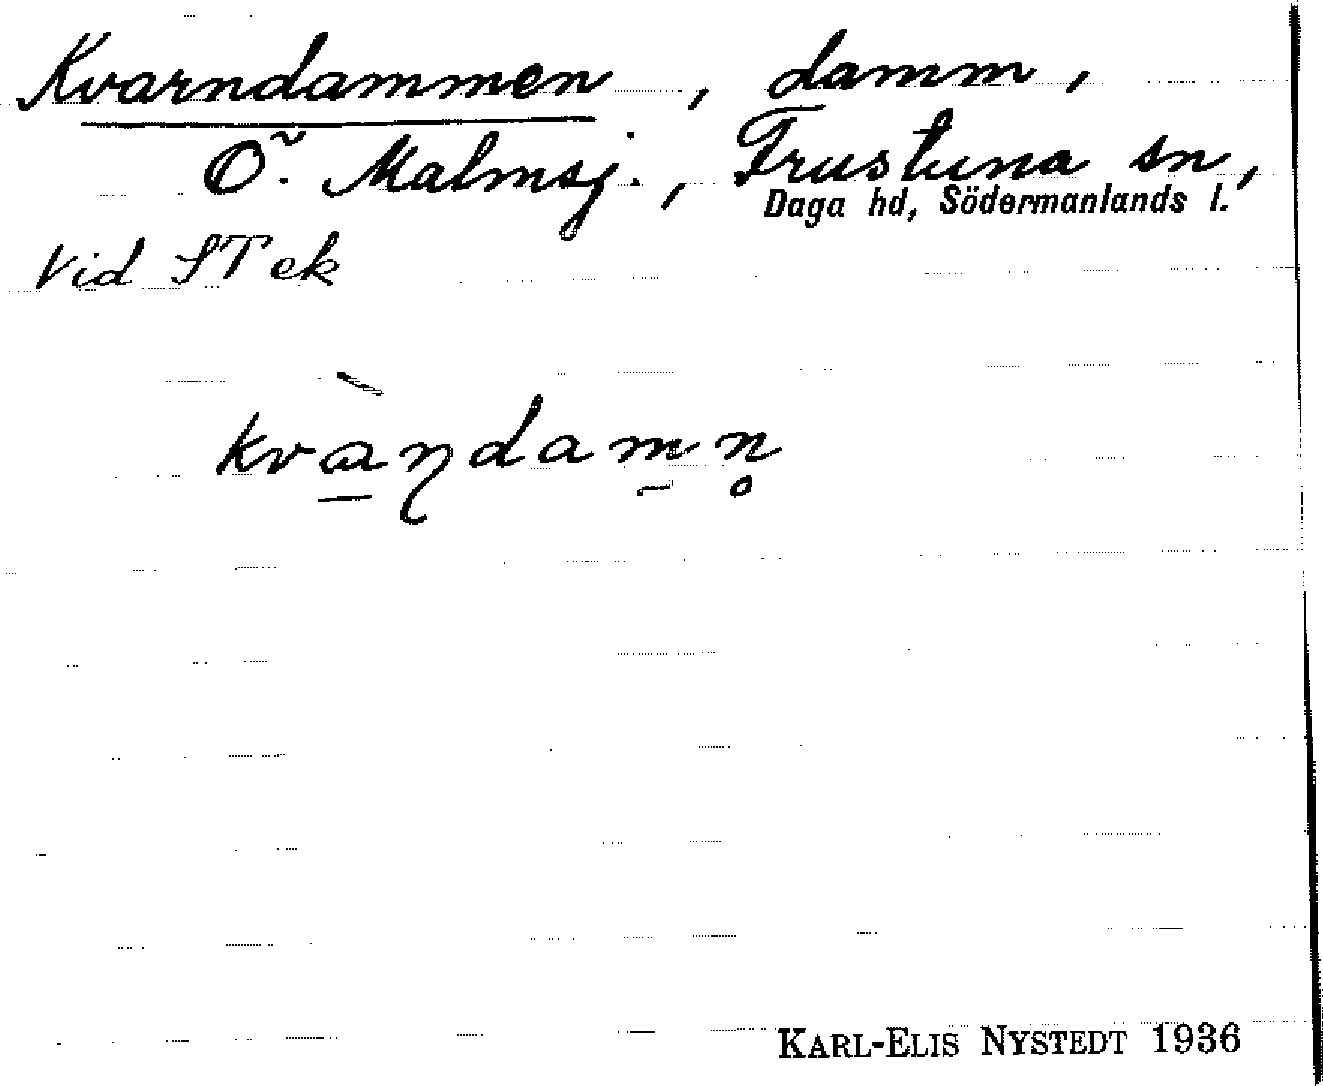 Kvarndammen, damm,
Ö. Malmsj., Frustuna sn,
Daga hd, Södermanlands l.
Vid STek
kvàṉɳdam̱n̥
KARL-ELIS NYSTEDT 1936